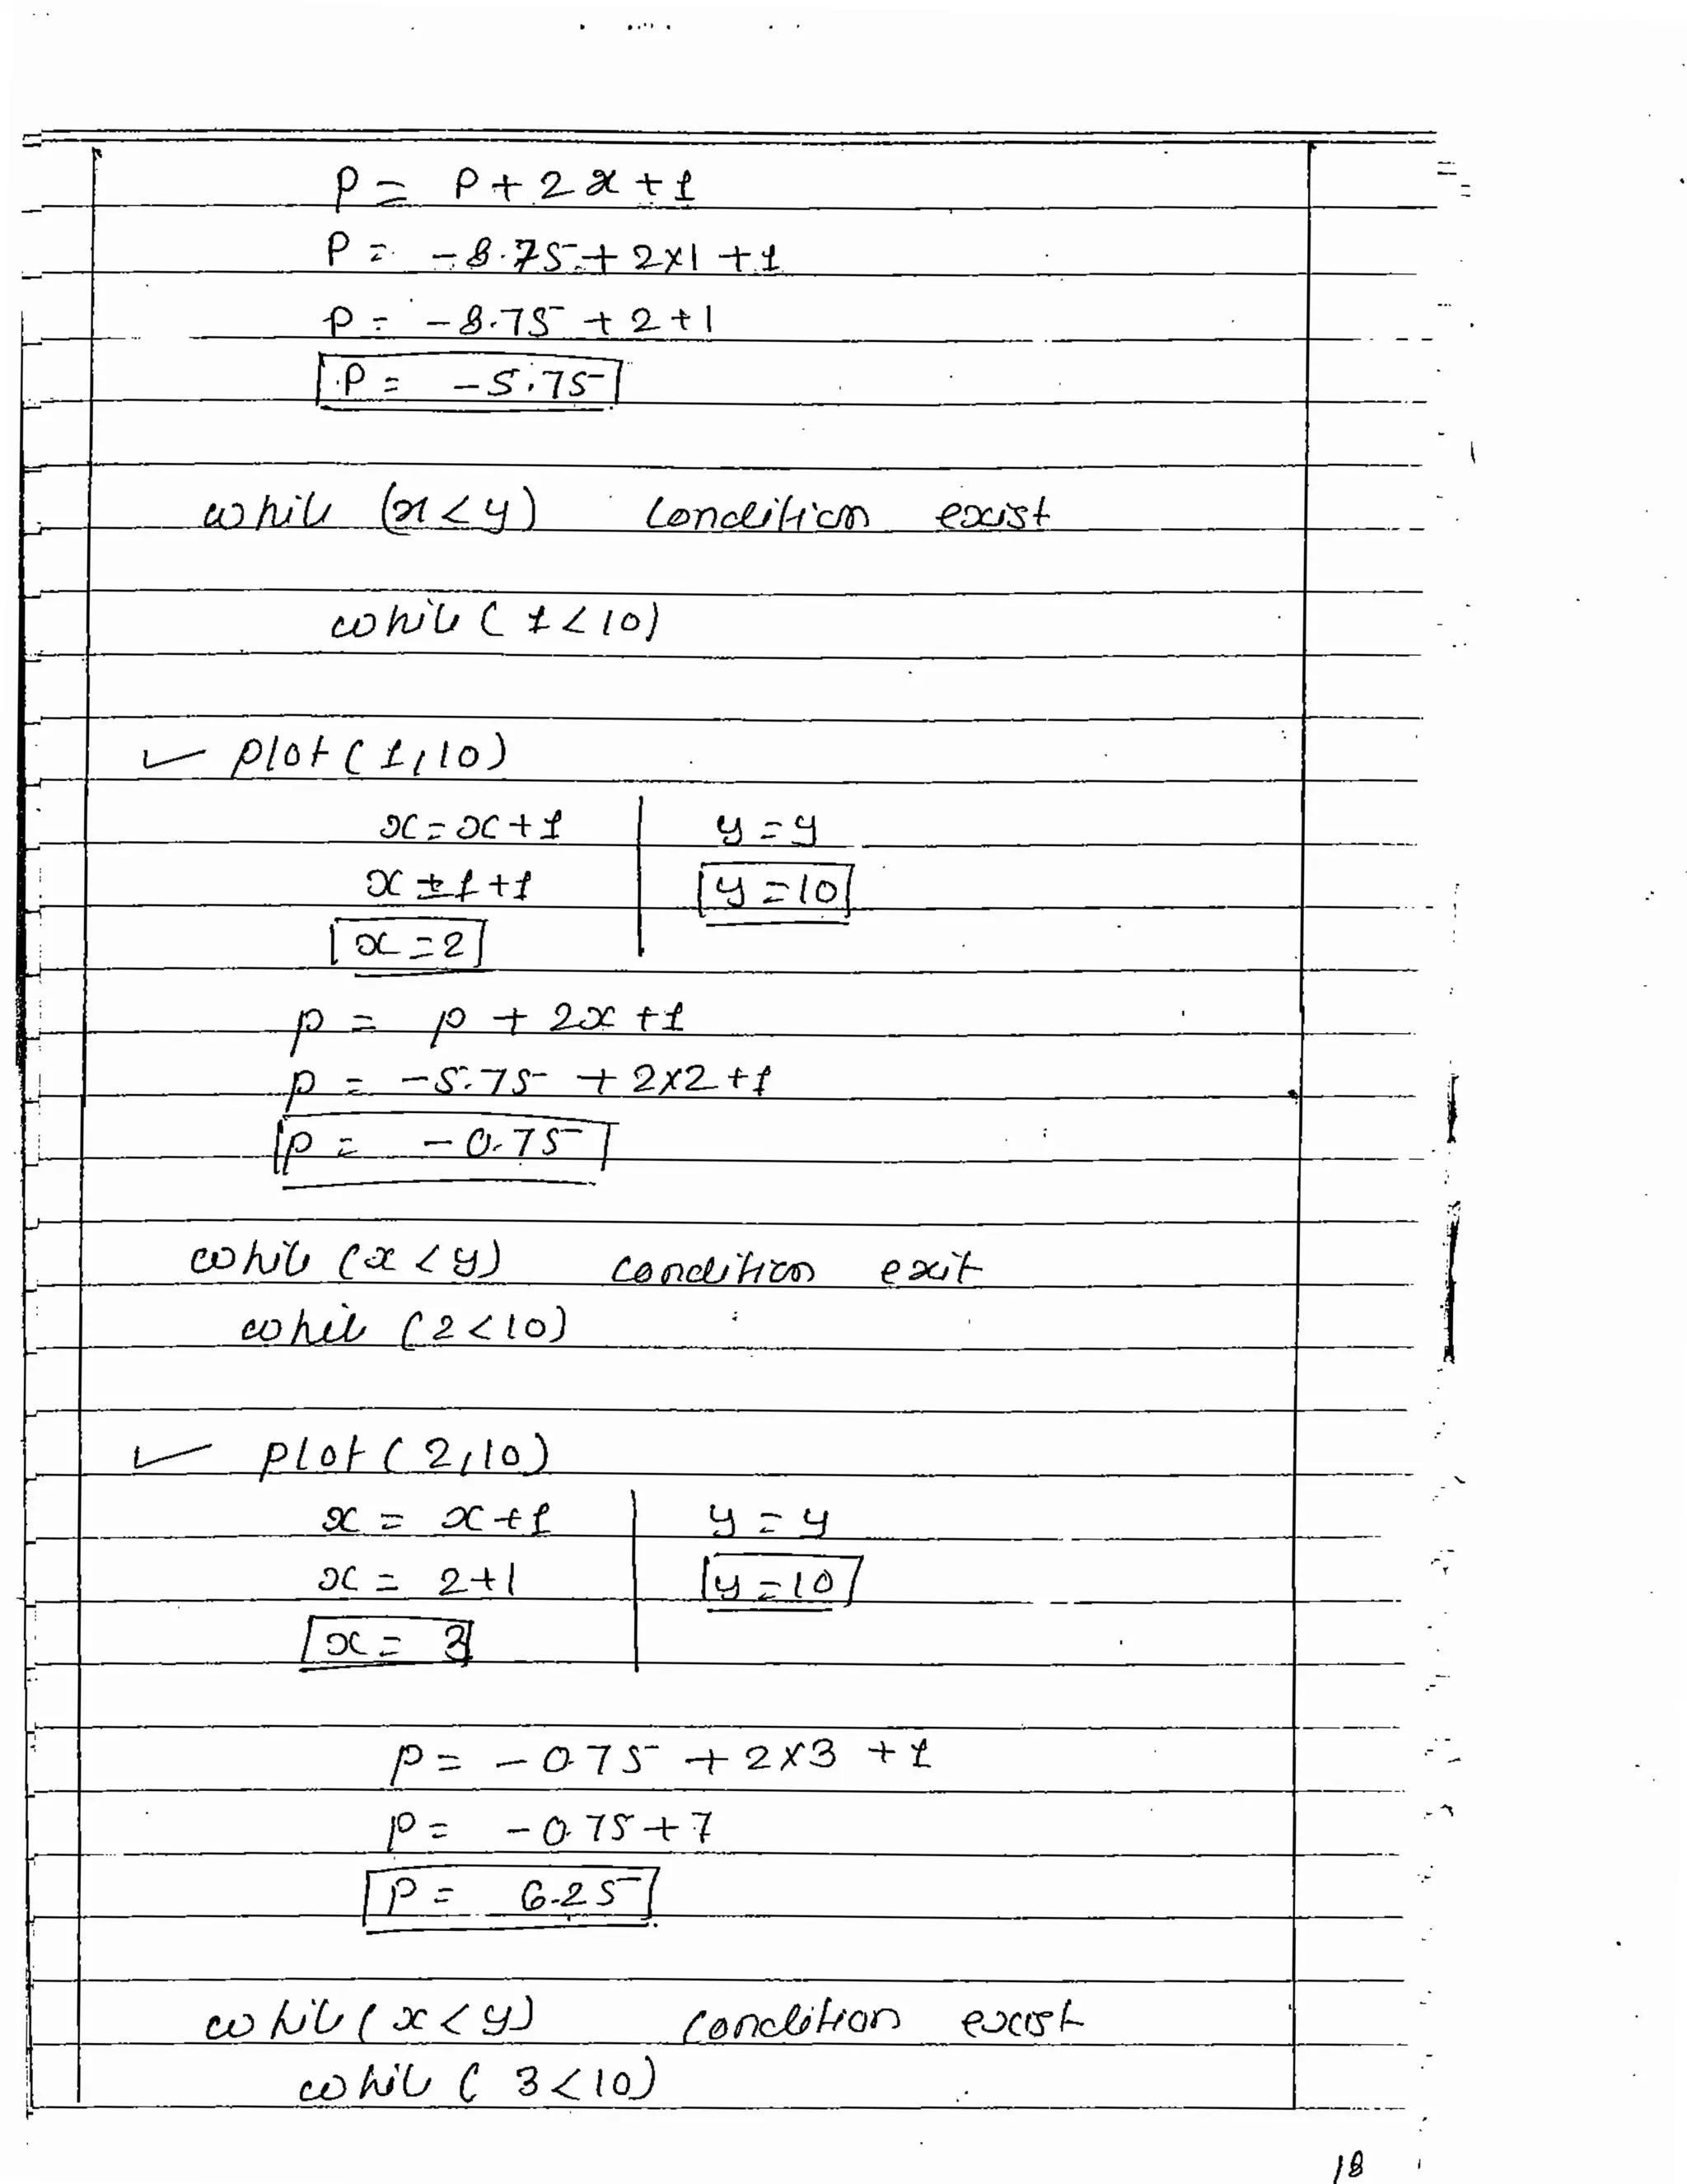 P = P + 2x + 1
P = -8.75 + 2×1 + 1
P = -8.75 + 2 + 1
P = -5.75
while (x < y) condition exist
while ( 1 < 10)
✓ plot ( 1, 10)
x = x + 1 y = y
x = 1 + 1 y = 10
x = 2
p = p + 2x + 1
p = -5.75 + 2×2 + 1
p = -0.75
while (x < y) condition exit
while (2 < 10)
✓ plot ( 2, 10)
x = x + 1 y = y
x = 2 + 1 y = 10
x = 3
p = -0.75 + 2×3 + 1
p = -0.75 + 7
p = 6.25
while ( x < y) condition exist
while ( 3 < 10)
18